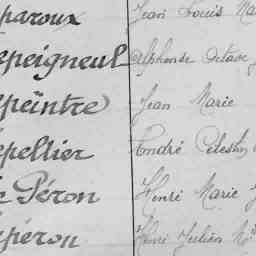 paroux Jean Louis Ma
epeigneul Alphonse Octave
epeintre Jean Marie
epellier André Célestin
e Péron Henri Marie J
epéron Henri Julien